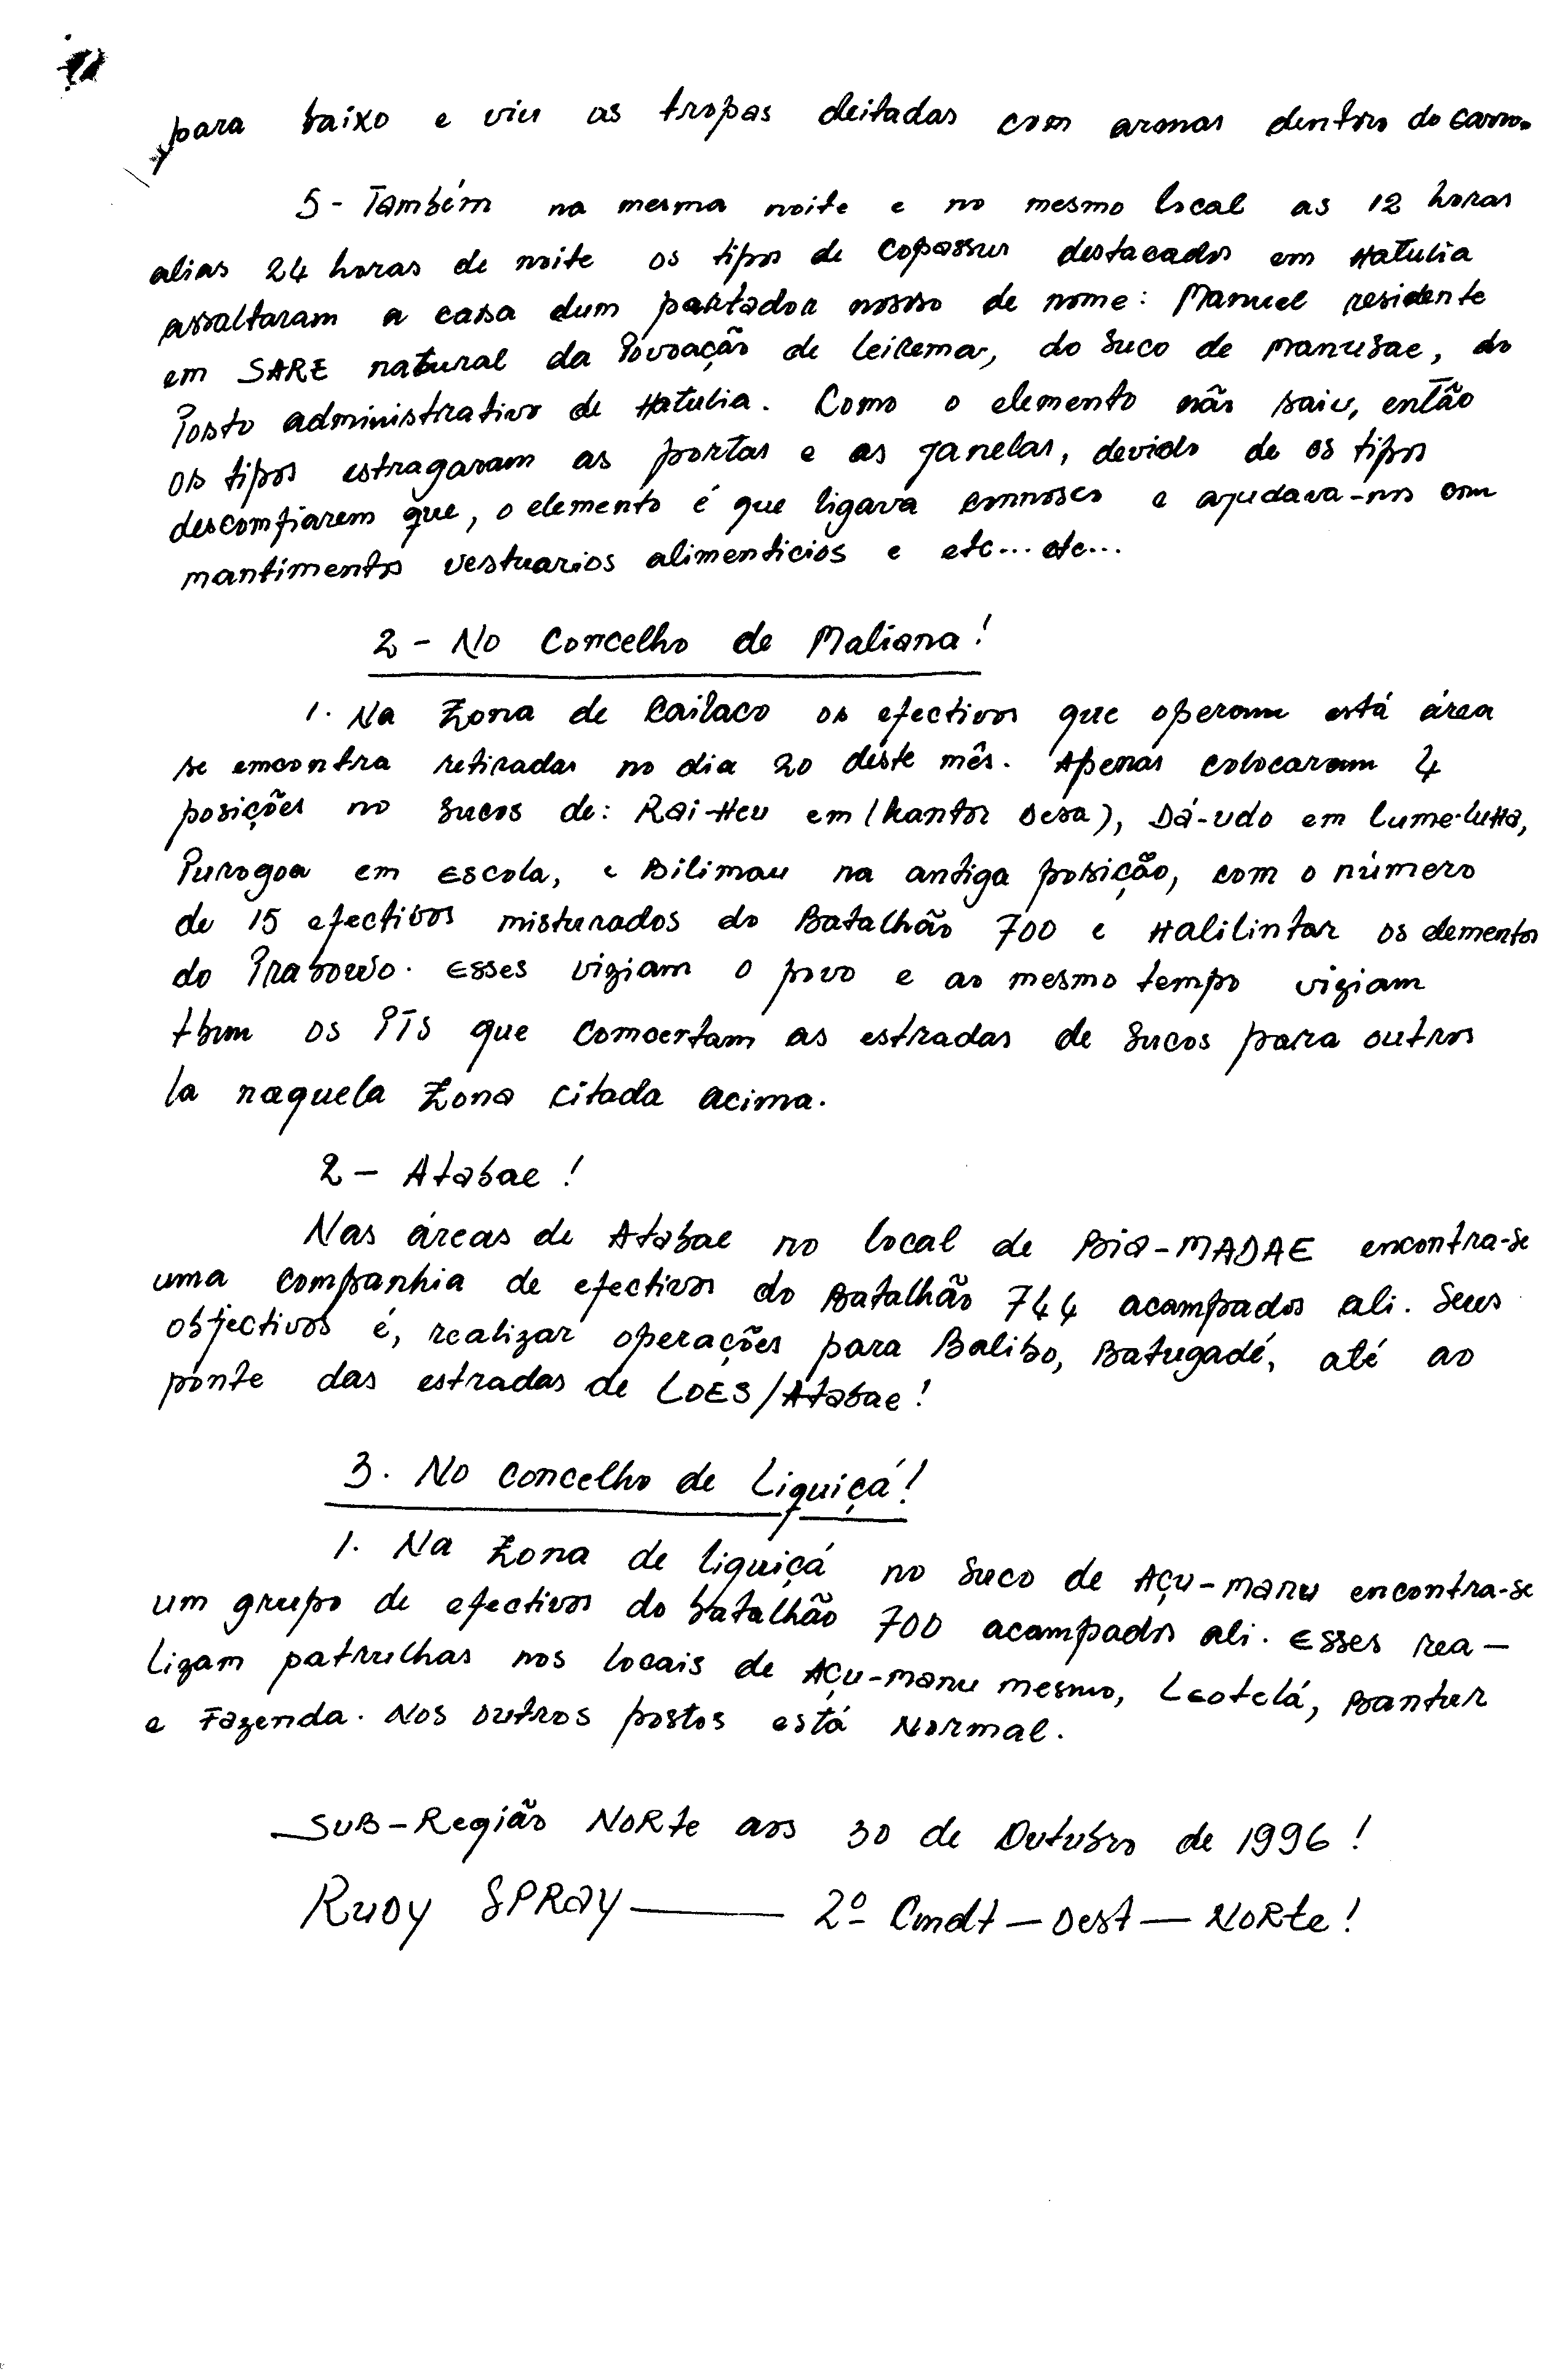 para baixo e viu as tropas deitadas com armas dentro do carro.
5 - Também na mesma noite e no mesmo local as 12 horas
alias 24 horas de noite os tipos de Copassus destacados em Hatulia
assaltaram a casa dum portador nosso de nome: Manuel residente
em SARE natural da Povoação de Leirema, do Suco de Manusae, do
Posto administrativo de Hatulia. Como o elemento não saiu, então
os tipos estragaram as portas e as janelas, devido de os tipos
descomfiarem que, o elemento é que ligava connosco e ajudava-nos com
mantimentos vestuarios alimenticios e etc... etc...
2 - No Concelho de Maliana!
1. Na Zona de Cailaco os efectivos que operam está área
se emcontra retiradas no dia 20 déste mês. Apenas colocaram 4
posições no Sucos de: Rai-Heu em (kantor Desa), Dá-udo em
Purogoa em Escola, e Bilimau na antiga posição, com o número
de 15 efectivos misturados do Batalhão 700 e Halilintar os elementos
do Prabowo. Esses vigiam o povo e ao mesmo tempo vigiam
tbm os PTS que comcertam as estradas de Sucos para outros
la naquela Zona citada acima.
2 - Atabae!
Nas áreas de Atabae no local de Bia-MADAE encontra-se
uma companhia de efectivos do Batalhão 744 acampados ali. Seus
objectivos é, realizar operações para Balibo, Batugadé, até ao
ponte das estradas de LOES/Atabae!
3. No concelho de Liquiçá!
1. Na Zona de Liquiçá no Suco de Açu-manu encontra-se
um grupo de efectivos do batalhão 700 acampados ali. Esses rea-
lizam patrulhas nos locais de Açu-manu mesmo, Leotelá, Bantur
e Fazenda. Nos outros postos está Normal.
SUB-Região NORte aos 30 de Outubro de 1996!
RUDY SPRAY — 2º Cmdt - Dest - NORte!